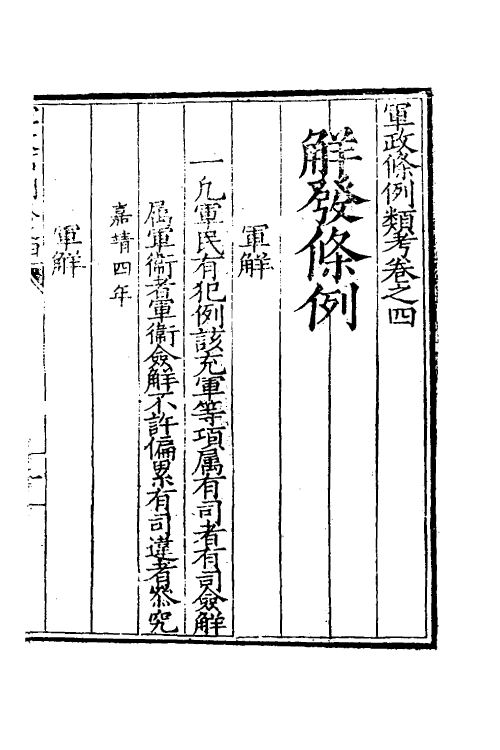 軍政條例類考卷之四
解發條例
軍解
一凡軍民有犯例該充軍等項属有司者有司僉解
属軍衛者軍衛僉解不許偏累有司違者叅究
嘉靖四年
軍解